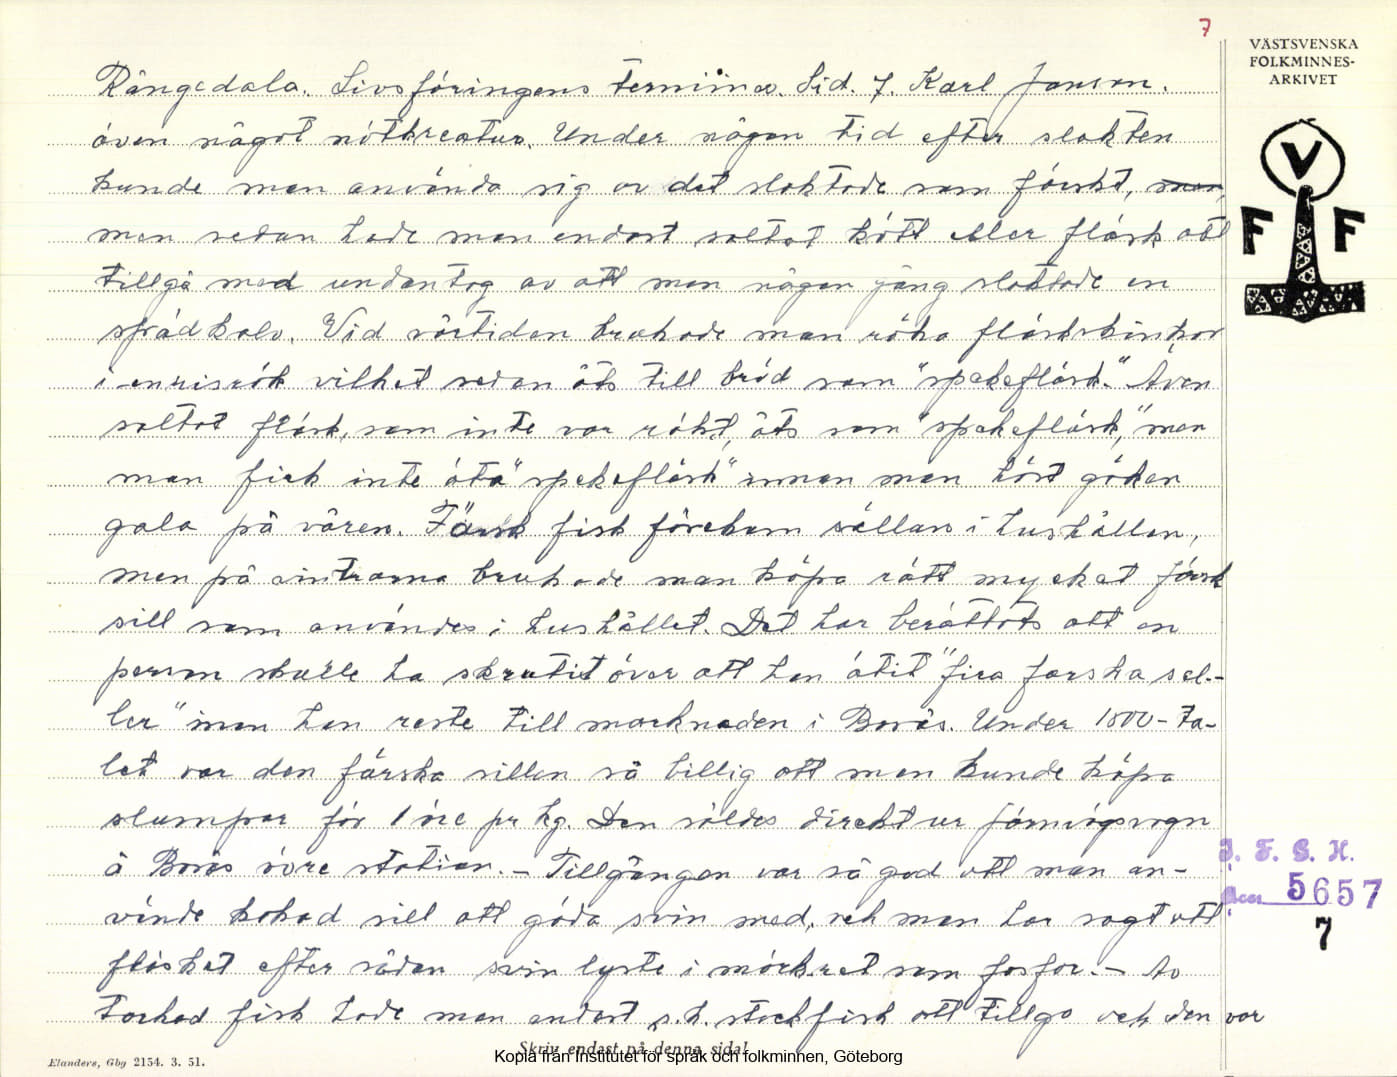 7
VÄSTSVENSKA
FOLKMINNES-
ARKIVET
V
F F
Rångedala. Livsföringens terminer. Sid. 7. Karl Janson.
även något nötkreatur. Under någon tid efter slakten
kunde man använda sig av det slaktade som färskt, man,
men sedan hade man endast saltat kött eller fläsk att
tillgå med undantag av att man någon gång slaktade en
spädkalv. Vid vårtiden brukade man röka fläskskinkor
i enrisrök vilket sedan åts till bröd som "spekefläsk." Även
saltat fläsk, som inte var rökt, åts som "spekefläsk," men
man fick inte äta "spekefläsk" innan man hört göken
gala på våren. Färsk fisk förekom sällan i hushållen,
men på vintrarna brukade man köpa rätt mycket färsk
sill som användes i hushållet. Det har berättats att en
person skulle ha skrutit över att han ätit "fira farska sel-
ler" innan han reste till marknaden i Borås. Under 1800-ta-
let var den färska sillen så billig att man kunde köpa
slumpar för 1 öre pr kg. Den såldes direkt ur järnvägsvagn
å Borås övre station. – Tillgången var så god att man an-
vände kokad sill att göda svin med, och man har sagt att
fläsket efter sådan svin lyste i mörkret som fosfor. – Av
torkad fisk hade man endast s.k. stockfisk att tillgå och den var
I. F. G. H.
Acc. 5657
7
Skriv endast på denna sida!
Kopia från Institutet för språk och folkminnen, Göteborg
Elanders, Gbg 2154. 3. 51.